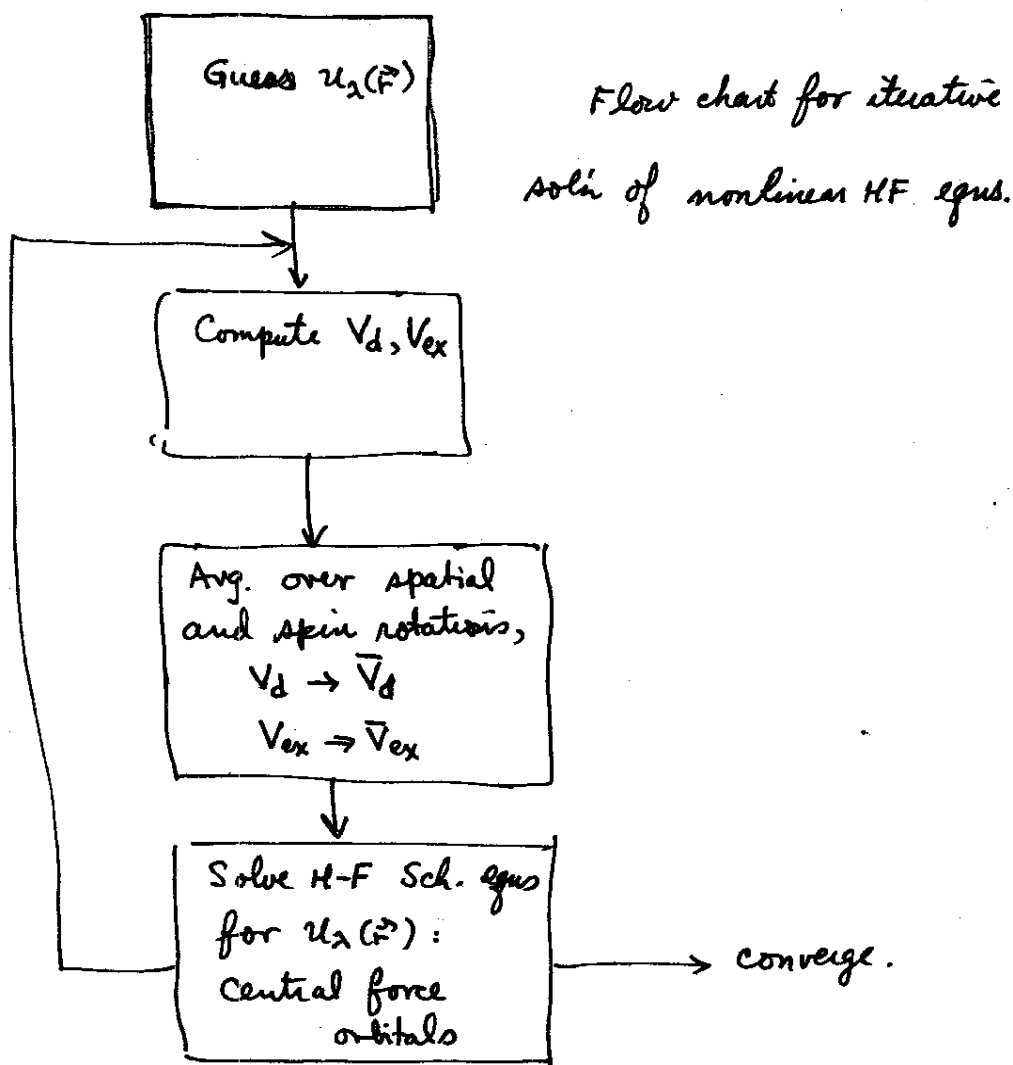 Guess u_λ(r⃗)
Flow chart for iterative
sol'n of nonlinear HF eqns.
Compute V_d, V_ex
Avg. over spatial
and spin rotations,
V_d → V̄_d
V_ex → V̄_ex
Solve H-F Sch. eqns
for u_λ(r⃗) :
central force
orbitals
converge.